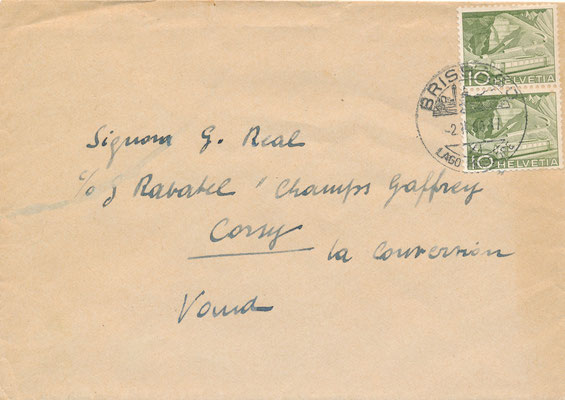 10 HELVETIA
BRISSAGO
10 HELVETIA
LAGO
Signora G. Real
c/o J Rabatel "Champs Gaffrey
Corsy
la Conversion
Vaud